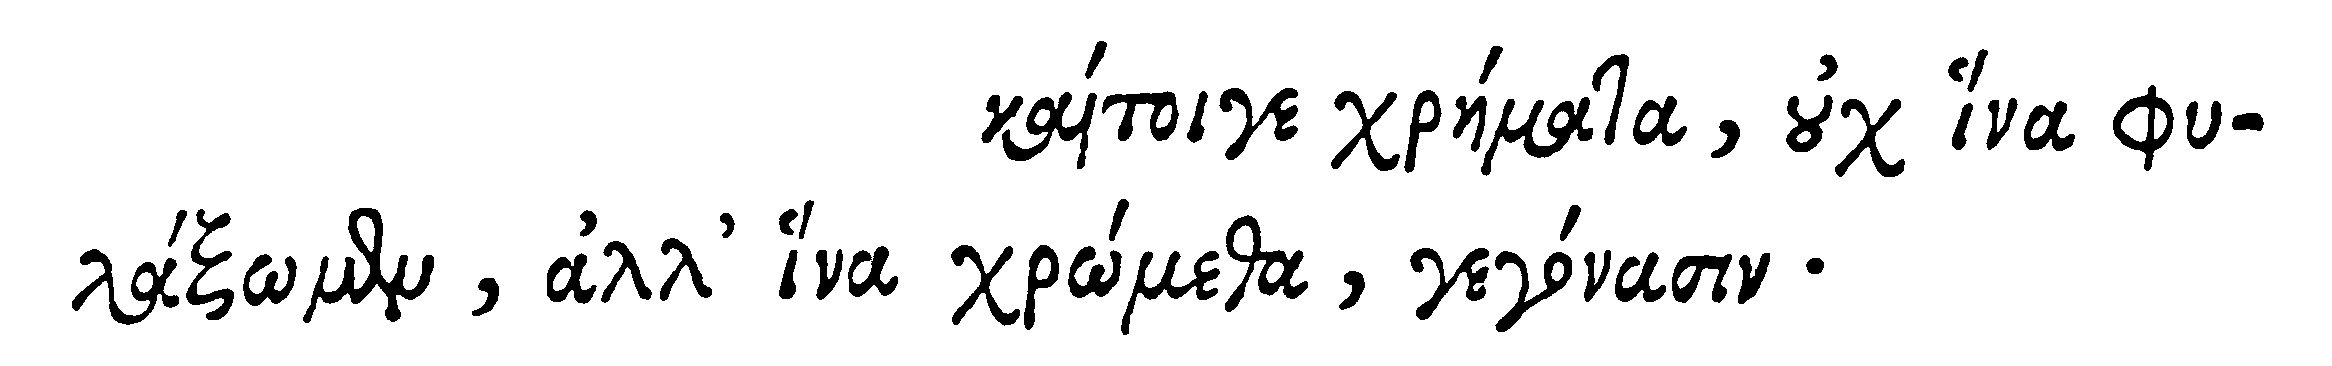 καίτοιγε χρήματα, οὐχ ἵνα φυ-
λάξωμεν, ἀλλ' ἵνα χρώμεθα, γεγόνασιν·